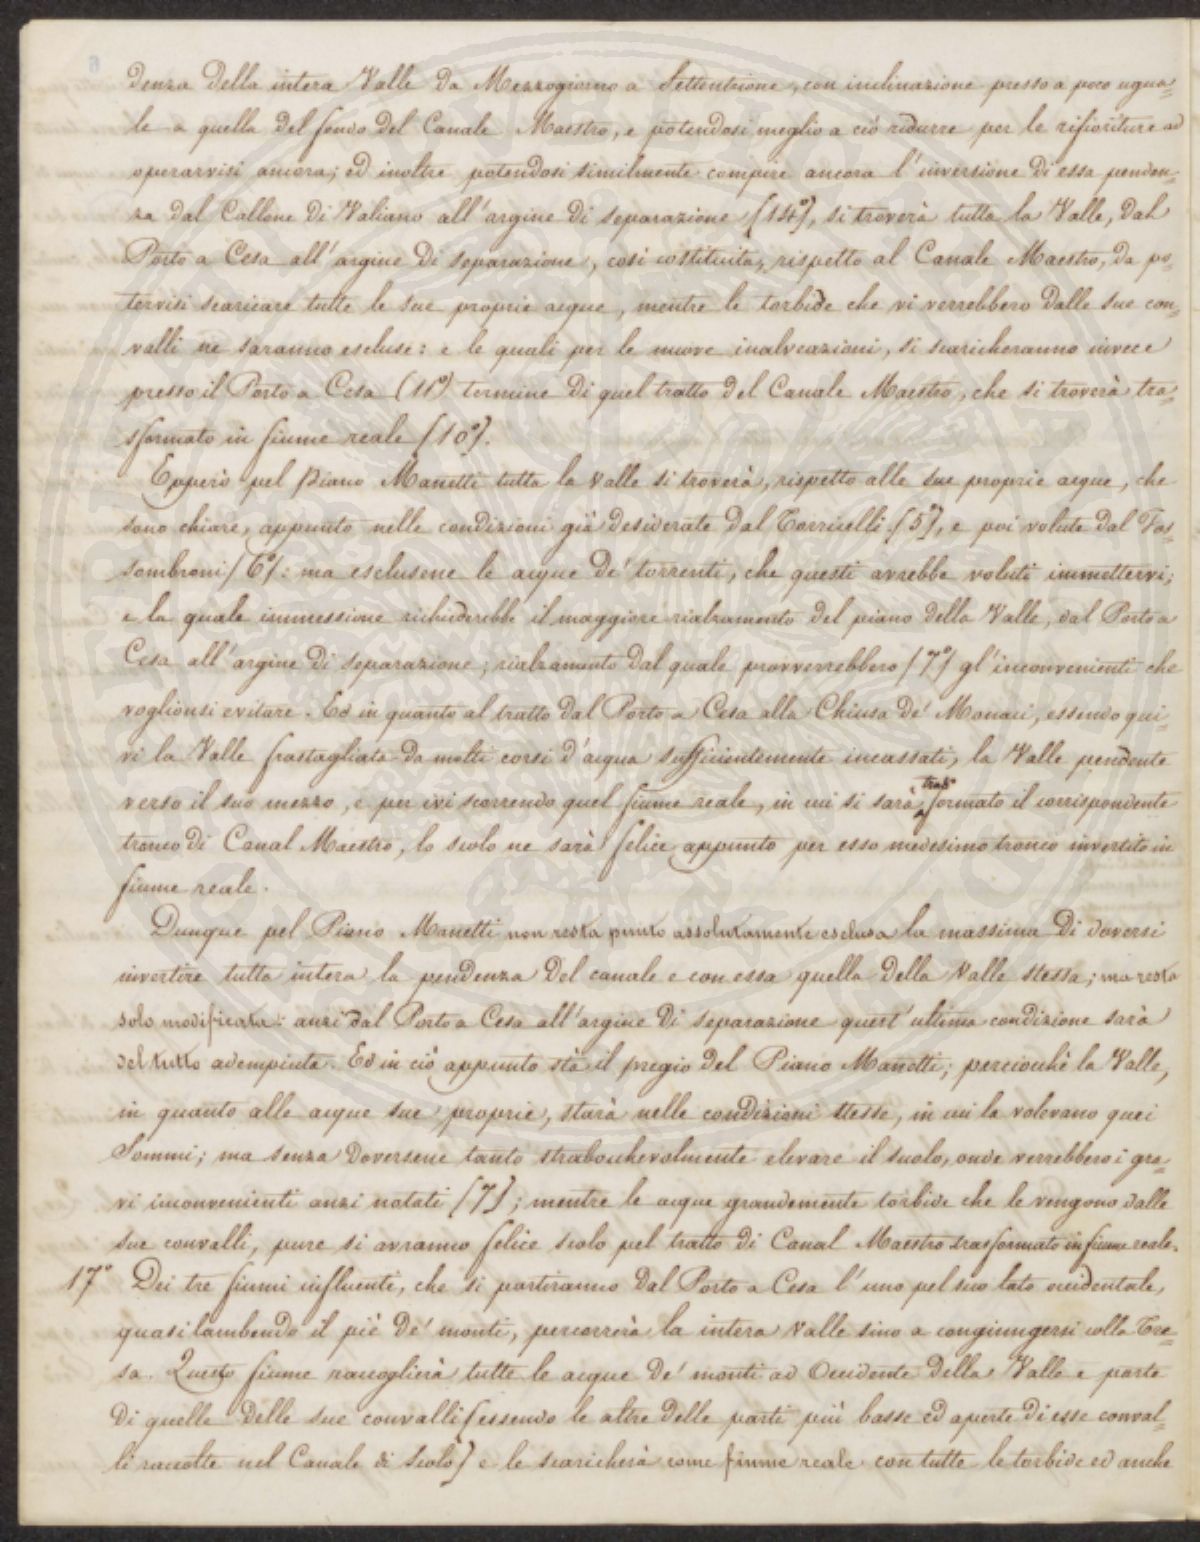 denza della intera Valle da Mezzogiorno a Settentrione, con inclinazione presso a poco ugua=
le a quella del fondo del Canale Maestro, e potendosi meglio a ciò ridurre per le rifioriture ad
operarvisi ancora; ed inoltre potendosi similmente compire ancora l'inversione di essa penden=
za dal Callone di Valiano all'argine di separazione [14°], si troverà tutta la Valle, dal
Porto a Cesa all'argine di separazione, così costituita, rispetto al Canale Maestro, da po=
tervisi scaricare tutte le sue proprie acque, mentre le torbide che vi verrebbero dalle sue con=
valli ne saranno escluse: e le quali per le nuove inalveazioni, si scaricheranno invece
presso il Porto a Cesa (11°) termine di quel tratto del Canale Maestro, che si troverà tra=
sformato in fiume reale [10°].
Epperò pel Piano Manetti tutta la Valle si troverà, rispetto alle sue proprie acque, che
sono chiare, appunto nelle condizioni già desiderate dal Torricelli [5°], e poi volute dal Fos=
sombroni [6°]: ma esclusene le acque de' torrenti, che questi avrebbe voluti immettervi;
e la quale immessione richiederebbe il maggiore rialzamento del piano della Valle, dal Porto a
Cesa all'argine di separazione; rialzamento dal quale provverrebbero [7°] gl'inconvenienti che
voglionsi evitare. Ed in quanto al tratto dal Porto a Cesa alla Chiusa de' Monaci, essendo qui=
vi la Valle frastagliata da molti corsi d'acqua sufficientemente incassati, la Valle pendente
verso il suo mezzo, e per ivi scorrendo quel fiume reale, in cui si sarà trasformato il corrispondente
tronco di Canal Maestro, lo scolo ne sarà felice appunto per esso medesimo tronco invertito in
fiume reale.
Dunque pel Piano Manetti non resta punto assolutamente esclusa la massima di doversi
invertire tutta intera la pendenza del canale e con essa quella della Valle stessa; ma resta
solo modificata: anzi dal Porto a Cesa all'argine di separazione quest'ultima condizione sarà
del tutto adempiuta. Ed in ciò appunto stà il pregio del Piano Manetti; perciocchè la Valle,
in quanto alle acque sue proprie, starà nelle condizioni stesse, in cui la volevano quei
Sommi; ma senza doversene tanto strabocchevolmente elevare il suolo, onde verrebbero i gra=
vi inconvenienti anzi notati [7]; mentre le acque grandemente torbide che le vengono dalle
sue convalli, pure si avranno felice scolo pel tratto di Canal Maestro trasformato in fiume reale.
17° Dei tre fiumi influenti, che si partiranno dal Porto a Cesa l'uno pel suo lato occidentale,
quasi lambendo il piè de' monti, percorrerà la intera Valle sino a congiungersi colla Tre=
sa. Questo fiume raccoglierà tutte le acque de' monti ad Occidente della Valle e parte
di quelle delle sue convalli [essendo le altre delle parti più basse ed aperte di esse conval=
li raccolte nel Canale di Scolo] e le scaricherà come fiume reale con tutte le torbide ed anche